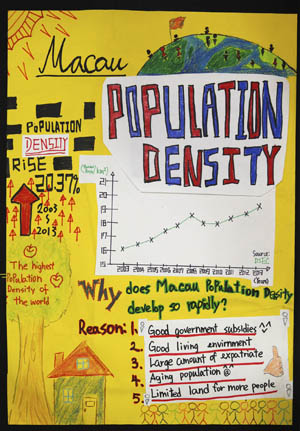 Macau
POPULATION
DENSITY
POPULATION
DENSITY
RISE
20.37%
2003
2013
The highest
Population
Density of
the world
21
20
19
18
17
16
15
2003 2004 2005 2006 2007 2008 2009 2010 2011 2012 2013
(Year)
Source:
DSEC
Why does Macau Population Density
develop so rapidly?
Reason: 1. Good government subsidies ^^
2. Good living envirnment
3. Large amount of expatriate
4. Aging population
5. Limited land for more people